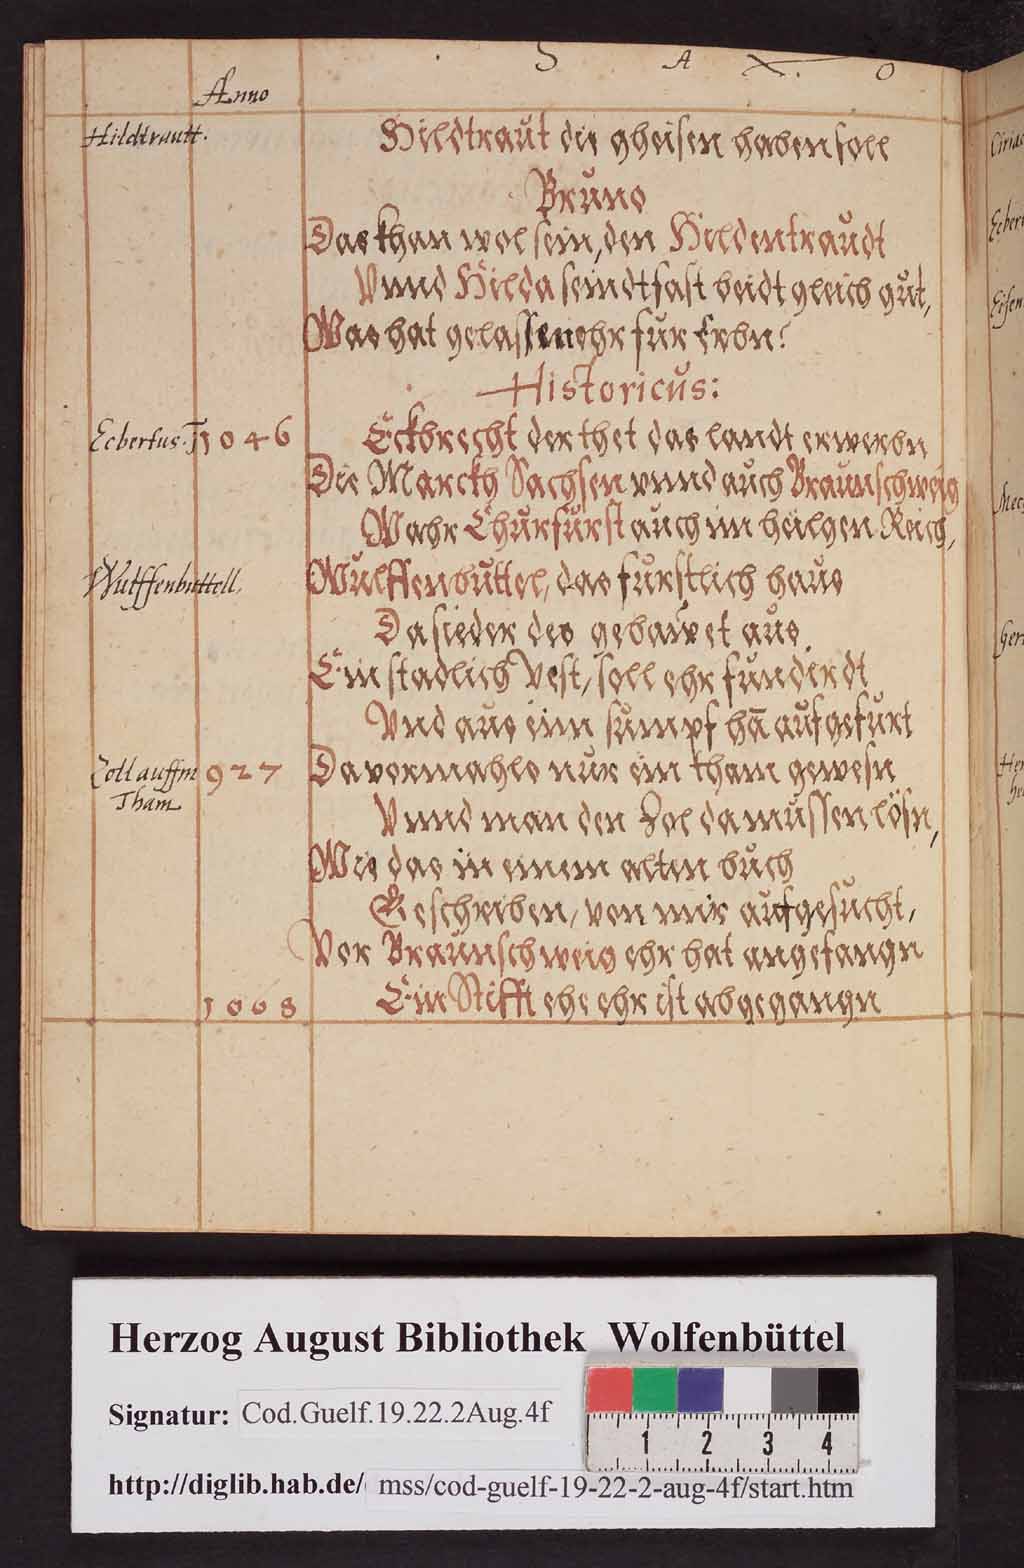 S A X O
Anno
Hildtrautt.
Hildtraut die gheisen haben soll
Bruno
Das khan wol sein, den Hildentraudt
Vnnd Hilda seindt fast beidt gleich gut,
Was hat gelassen ehr fur Erbn?
Historicus:
Ecbertus. 1046 Eckbrecht der thet das landt erwerbn
Die Marckh Sachsen vnnd auch Braunschweig
Wahr Churfurst auch im heilgen Reich,
Wulffenbuttell. Wulffenbuttel, das furstlich haus
Da sieder des gebawet aus,
Ein stadlich Vest, soll ehr funderdt
Vnd aus eim sumpf hā aufgefurt
Zoll auffm 927 Da vormahls nur ein tham gewesn
Tham
Vnnd man den Zol da mussen lösn,
Wie das in einem alten buch
Geschriben, von mir aufgesucht,
Vor Braunschweig ehr hat angefangn
1008 Ein Stifft ehe ehr ist abgegangn
Herzog August Bibliothek Wolfenbüttel
Signatur: Cod.Guelf.19.22.2Aug.4f
1 2 3 4
http://diglib.hab.de/ mss/cod-guelf-19-22-2-aug-4f/start.htm